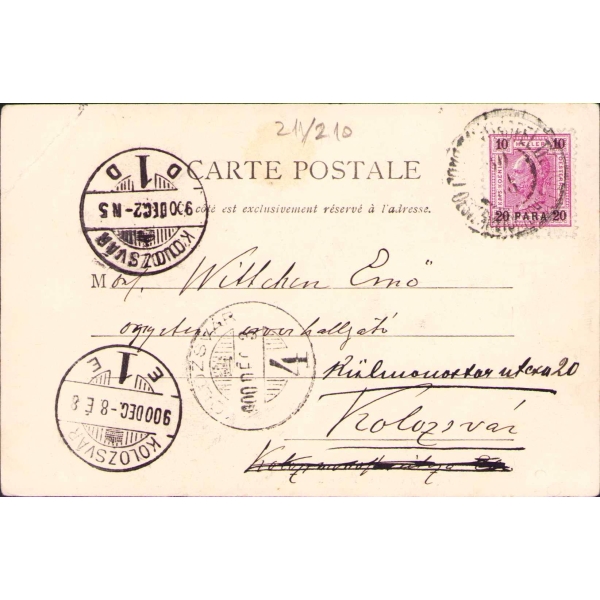 211/210
CARTE POSTALE
côté est exclusivement réservé à l'adresse.
10 10
20 PARA 20
KOLOZSVÁR
900 DEC-2-N5
D 1 D
M Wittchen Ernő
egyetemi orvoshallgató
KOLOZSVÁR
900 DEC 3
4
Külmonostor utcza 20
E 1 E
900 DEC-8-É8
KOLOZSVÁR
Kolozsvár